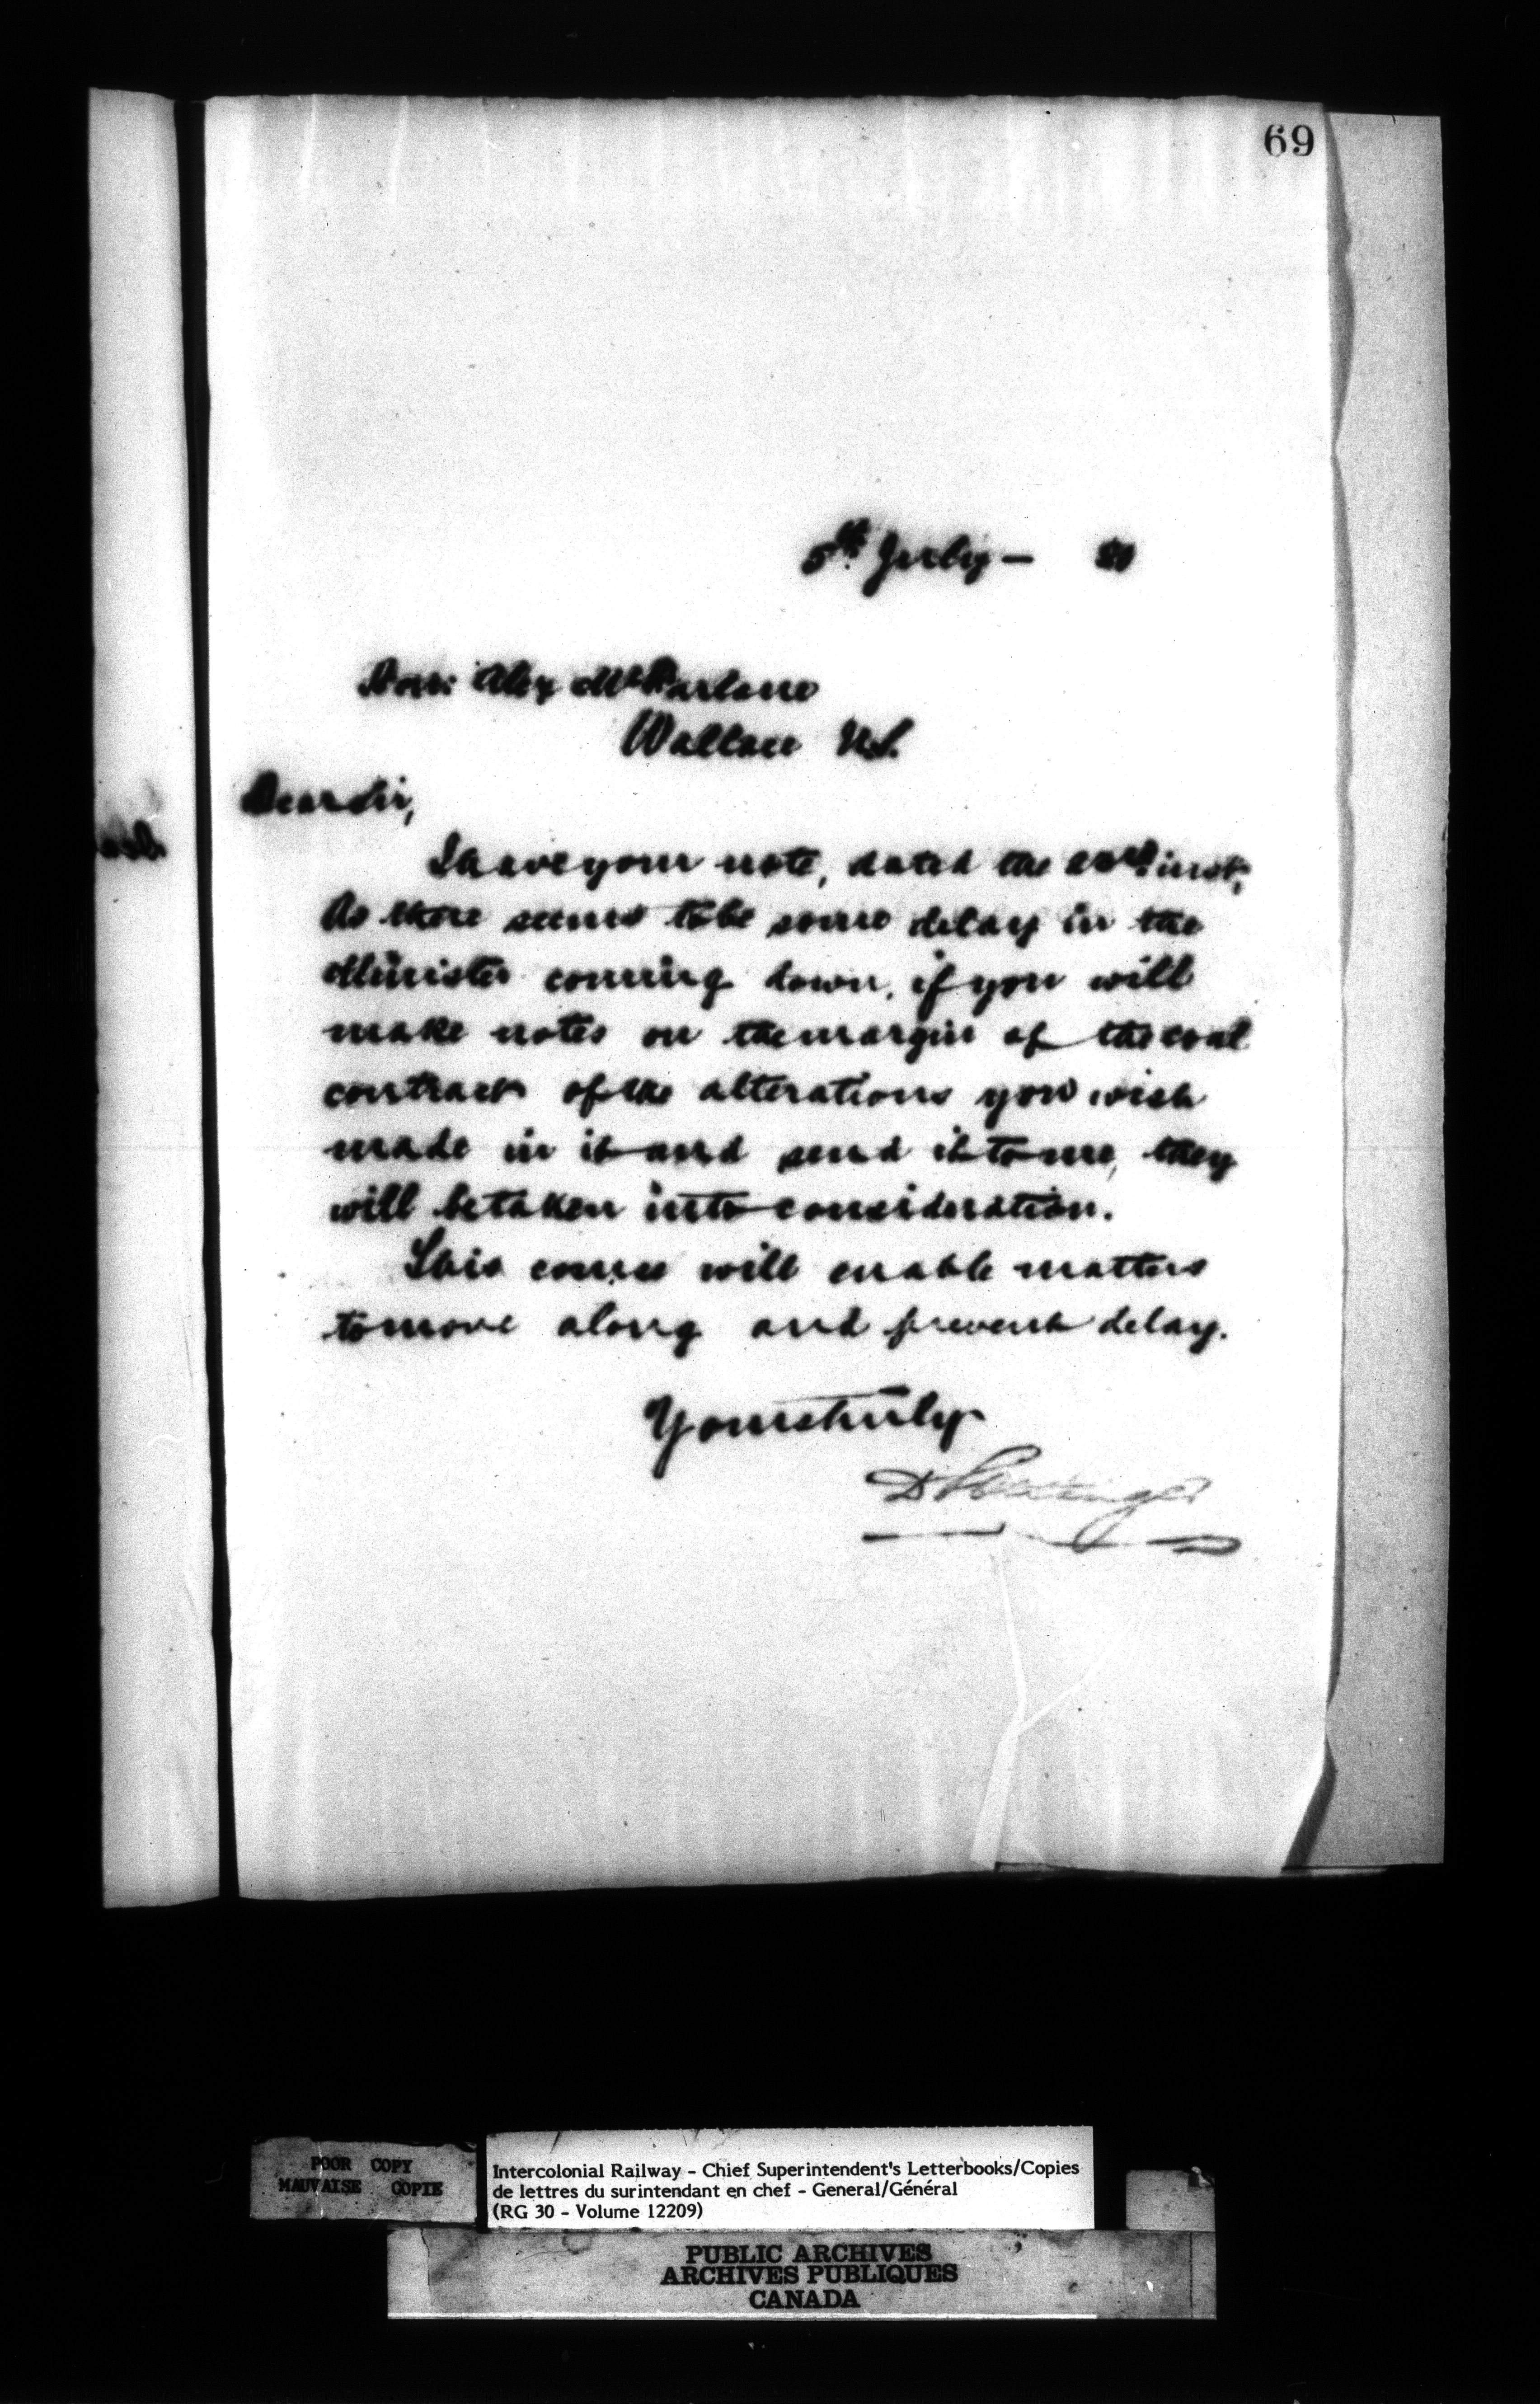 69
5th July — 80
Hon: Alex McFarlane
Wallace N.S.
Dear Sir,
I have your note, dated the 2nd inst,
As there seems to be some delay in the
Minister coming down, if you will
make notes on the margin of the coal
contract of the alterations you wish
made in it and send it to me, they
will be taken into consideration.
This course will enable matters
to move along and prevent delay.
Yours truly
D Pottinger
POOR COPY
MAUVAISE COPIE
Intercolonial Railway - Chief Superintendent's Letterbooks/Copies
de lettres du surintendant en chef - General/Général
(RG 30 - Volume 12209)
PUBLIC ARCHIVES
ARCHIVES PUBLIQUES
CANADA